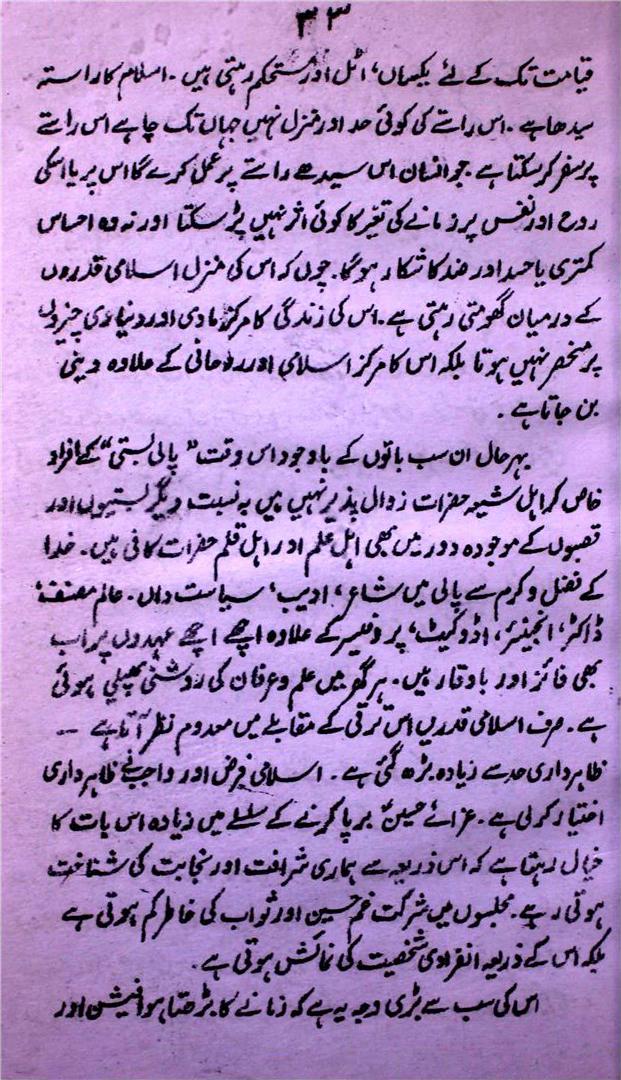 ۳۳
قیامت تک کے لئے یکساں، اٹل اور مستحکم رہتی ہیں۔ اسلام کا راستہ
سیدھا ہے۔ اس راستے کی کوئی حد اور منزل نہیں جہاں تک چاہے اس راستے
پر سفر کر سکتا ہے۔ جو انسان اس سیدھے راستے پر عمل کرے گا اس پر یا اسکی
روح اور نفس پر زمانے کی تغیّر کا کوئی اثر نہیں پڑ سکتا اور نہ وہ احساس
کمتری یا حسد اور ضد کا شکار ہوگا۔ چوں کہ اس کی منزل اسلامی قدروں
کے درمیان گھومتی رہتی ہے۔ اس کی زندگی کا مرکز مادی اور دنیاوی چیزوں
پر منحصر نہیں ہوتا بلکہ اس کا مرکز اسلامی اور روحانی کے علاوہ دینی
بن جاتا ہے۔
بہر حال ان سب باتوں کے باوجود اس وقت "پالی بستی" کے افراد
خاص کر اہل شیعہ حضرات زوال پذیر نہیں ہیں بہ نسبت دیگر بستیوں اور
قصبوں کے موجودہ دور میں بھی اہل علم اور اہل قلم حضرات کافی ہیں۔ خدا
کے فضل و کرم سے پالی میں شاعر، ادیب، سیاست داں۔ عالم مصنف،
ڈاکٹر، انجینئر، اڈوکیٹ، پروفیسر کے علاوہ اچھے اچھے عہدوں پر اب
بھی فائز اور باوقار ہیں۔ ہر گھر میں علم و عرفان کی روشنی پھیلی ہوئی
ہے۔ صرف اسلامی قدریں اس ترقی کے مقابلے میں معدوم نظر آتا ہے —
ظاہر داری حد سے زیادہ بڑھ گئی ہے۔ اسلامی فرض اور واجب نے ظاہر داری
اختیار کر لی ہے۔ عزائے حسینؑ برپا کرنے کے سلسلے میں زیادہ اس بات کا
خیال رہتا ہے کہ اس ذریعہ سے ہماری شرافت اور نجابت کی شناخت
ہوتی رہے۔ مجلسوں میں شرکت غم حسین اور ثواب کی خاطر کم ہوتی ہے
بلکہ اس کے ذریعہ انفرادی شخصیت کی نمائش ہوتی ہے۔
اس کی سب سے بڑی وجہ یہ ہے کہ زمانے کا بڑھتا ہوا فیشن اور